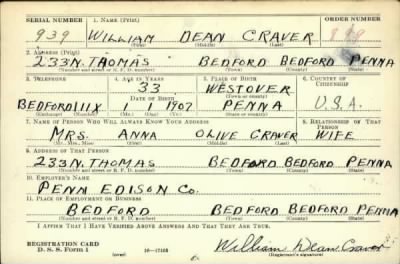 SERIAL NUMBER 1. NAME (Print) ORDER NUMBER
939 WILLIAM DEAN CRAVER
(First) (Middle) (Last)
2. ADDRESS (Print)
233 N. THOMAS BEDFORD BEDFORD PENNA
(Number and street or R. F. D. number) (Town) (County) (State)
3. TELEPHONE 4. AGE IN YEARS 5. PLACE OF BIRTH 6. COUNTRY OF CITIZENSHIP
33 WESTOVER
DATE OF BIRTH
BEDFORD 111X 1 1 1907 PENNA U.S.A.
(Exchange) (Number) (Mo.) (Day) (Yr.)
7. NAME OF PERSON WHO WILL ALWAYS KNOW YOUR ADDRESS 8. RELATIONSHIP OF THAT PERSON
MRS. ANNA OLIVE CRAVER WIFE
(Mr., Mrs., Miss) (First) (Middle) (Last)
9. ADDRESS OF THAT PERSON
233 N. THOMAS BEDFORD BEDFORD PENNA
(Number and street or R. F. D. number) (Town) (County) (State)
10. EMPLOYER'S NAME
PENN EDISON CO.
11. PLACE OF EMPLOYMENT OR BUSINESS
BEDFORD BEDFORD BEDFORD PENNA
(Number and street or R. F. D. number) (Town) (County) (State)
I AFFIRM THAT I HAVE VERIFIED ABOVE ANSWERS AND THAT THEY ARE TRUE.
REGISTRATION CARD
D. S. S. Form 1 (over) William Dean Craver
(Registrant's signature)